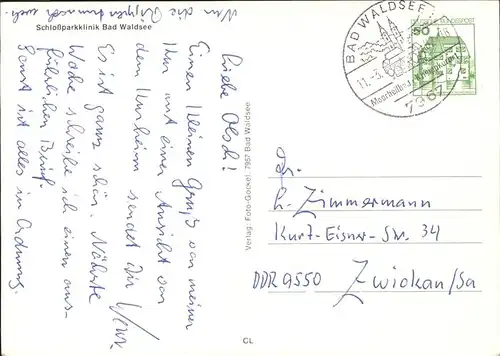 Nur die
Schloßparkklinik Bad Waldsee
Liebe
Einen kleinen Gruß von meiner
Kur mit einer Ansicht von
dem Kurheim sendet dir
Es ist ganz schön. Nächste
Woche schreibe ich einen aus-
führlichen Brief.
Sonst ist alles in Ordnung.
Verlag: Foto-Gockel, 7967 Bad Waldsee
CL
BAD WALDSEE
Moorheilbad
7967
DEUTSCHE BUNDESPOST
50
H. Zimmermann
Kurt-Eisner-Str. 34
DDR 9550 Zwickau/Sa